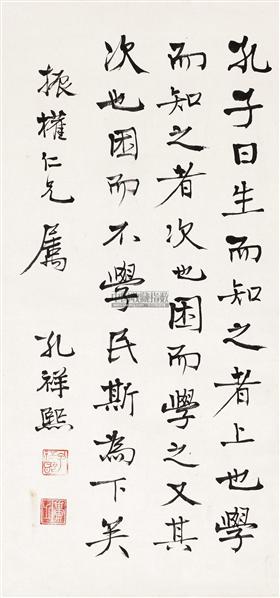 孔子曰生而知之者上也學
而知之者次也困而學之又其
次也困而不學民斯為下矣
振權仁兄屬
孔祥熙